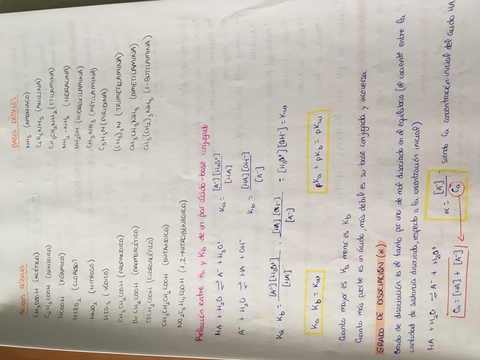 ÁCIDOS DÉBILES
CH₃COOH (ACÉTICO)
C₆H₅COOH (BENZOICO)
HCOOH (FÓRMICO)
HNO₂ (NITROSO)
CH₃CH₂COOH (PROPANOICO)
BrCH₂COOH (BROMOACÉTICO)
ClCH₂COOH (CLOROACÉTICO)
CH₃CH₂CH₂COOH (BUTANOICO)
BASES DÉBILES
NH₃ (AMONIACO)
C₆H₅NH₂ (ANILINA)
CH₃CH₂NH₂ (ETILAMINA)
NH₂-NH₂ (HIDRACINA)
NH₂OH (HIDROXILAMINA)
CH₃NH₂ (METILAMINA)
C₅H₅N (PIRIDINA)
(CH₃)₃N (TRIMETILAMINA)
Relación entre Ka y Kb de un par ácido-base conjugado
HA + H₂O ⇌ A⁻ + H₃O⁺ Ka = [A⁻][H₃O⁺] / [HA]
A⁻ + H₂O ⇌ HA + OH⁻ Kb = [HA][OH⁻] / [A⁻]
Ka · Kb = [A⁻][H₃O⁺] / [HA] · [HA][OH⁻] / [A⁻] = [H₃O⁺][OH⁻] = Kw
Ka · Kb = Kw pKa + pKb = pKw
Cuanto mayor es Ka menor es Kb
Cuanto más fuerte es un ácido, más débil es su base conjugada y viceversa.
GRADO DE DISOCIACIÓN (α)
Grado de disociación es el tanto por uno de mol disociado en el equilibrio (el cociente entre la
cantidad de sustancia disociada, respecto a la concentración inicial)
HA + H₂O ⇌ A⁻ + H₃O⁺ α = [A⁻] / Ca siendo Ca concentración inicial del ácido HA
Ca = [HA] + [A⁻]